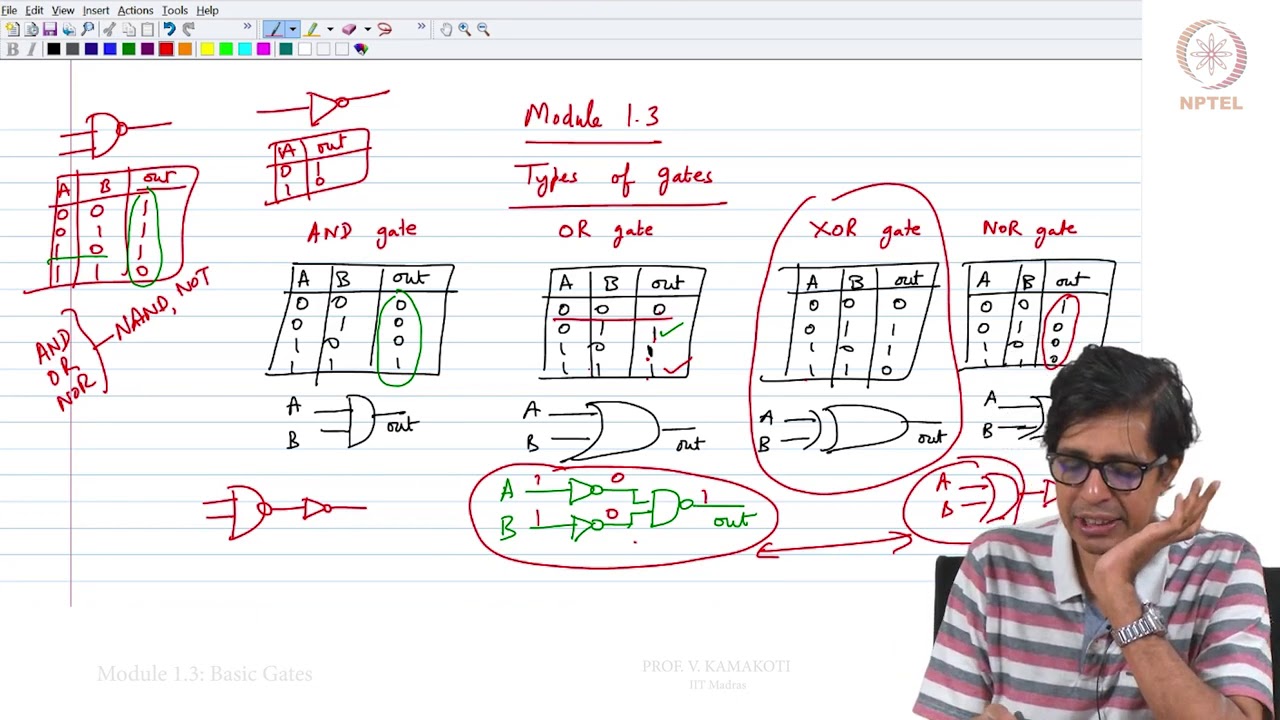 File Edit View Insert Actions Tools Help
NPTEL
Module 1.3
Types of gates
A out
0 1
1 0
A B out
0 0 1
0 1 1
1 0 1
1 1 0
AND
OR
NOR
NAND, NOT
AND gate
A B out
0 0 0
0 1 0
1 0 0
1 1 1
A
B
out
OR gate
A B out
0 0 0
0 1 1
1 0 1
1 1 1
A
B
out
XOR gate
A B out
0 0 0
0 1 1
1 0 1
1 1 0
A
B
out
NOR gate
A B out
0 0 1
0 1 0
1 0 0
1 1 0
A
B
A 1 0
B 1 0
1
out
A
B
Module 1.3: Basic Gates
PROF. V. KAMAKOTI
IIT Madras